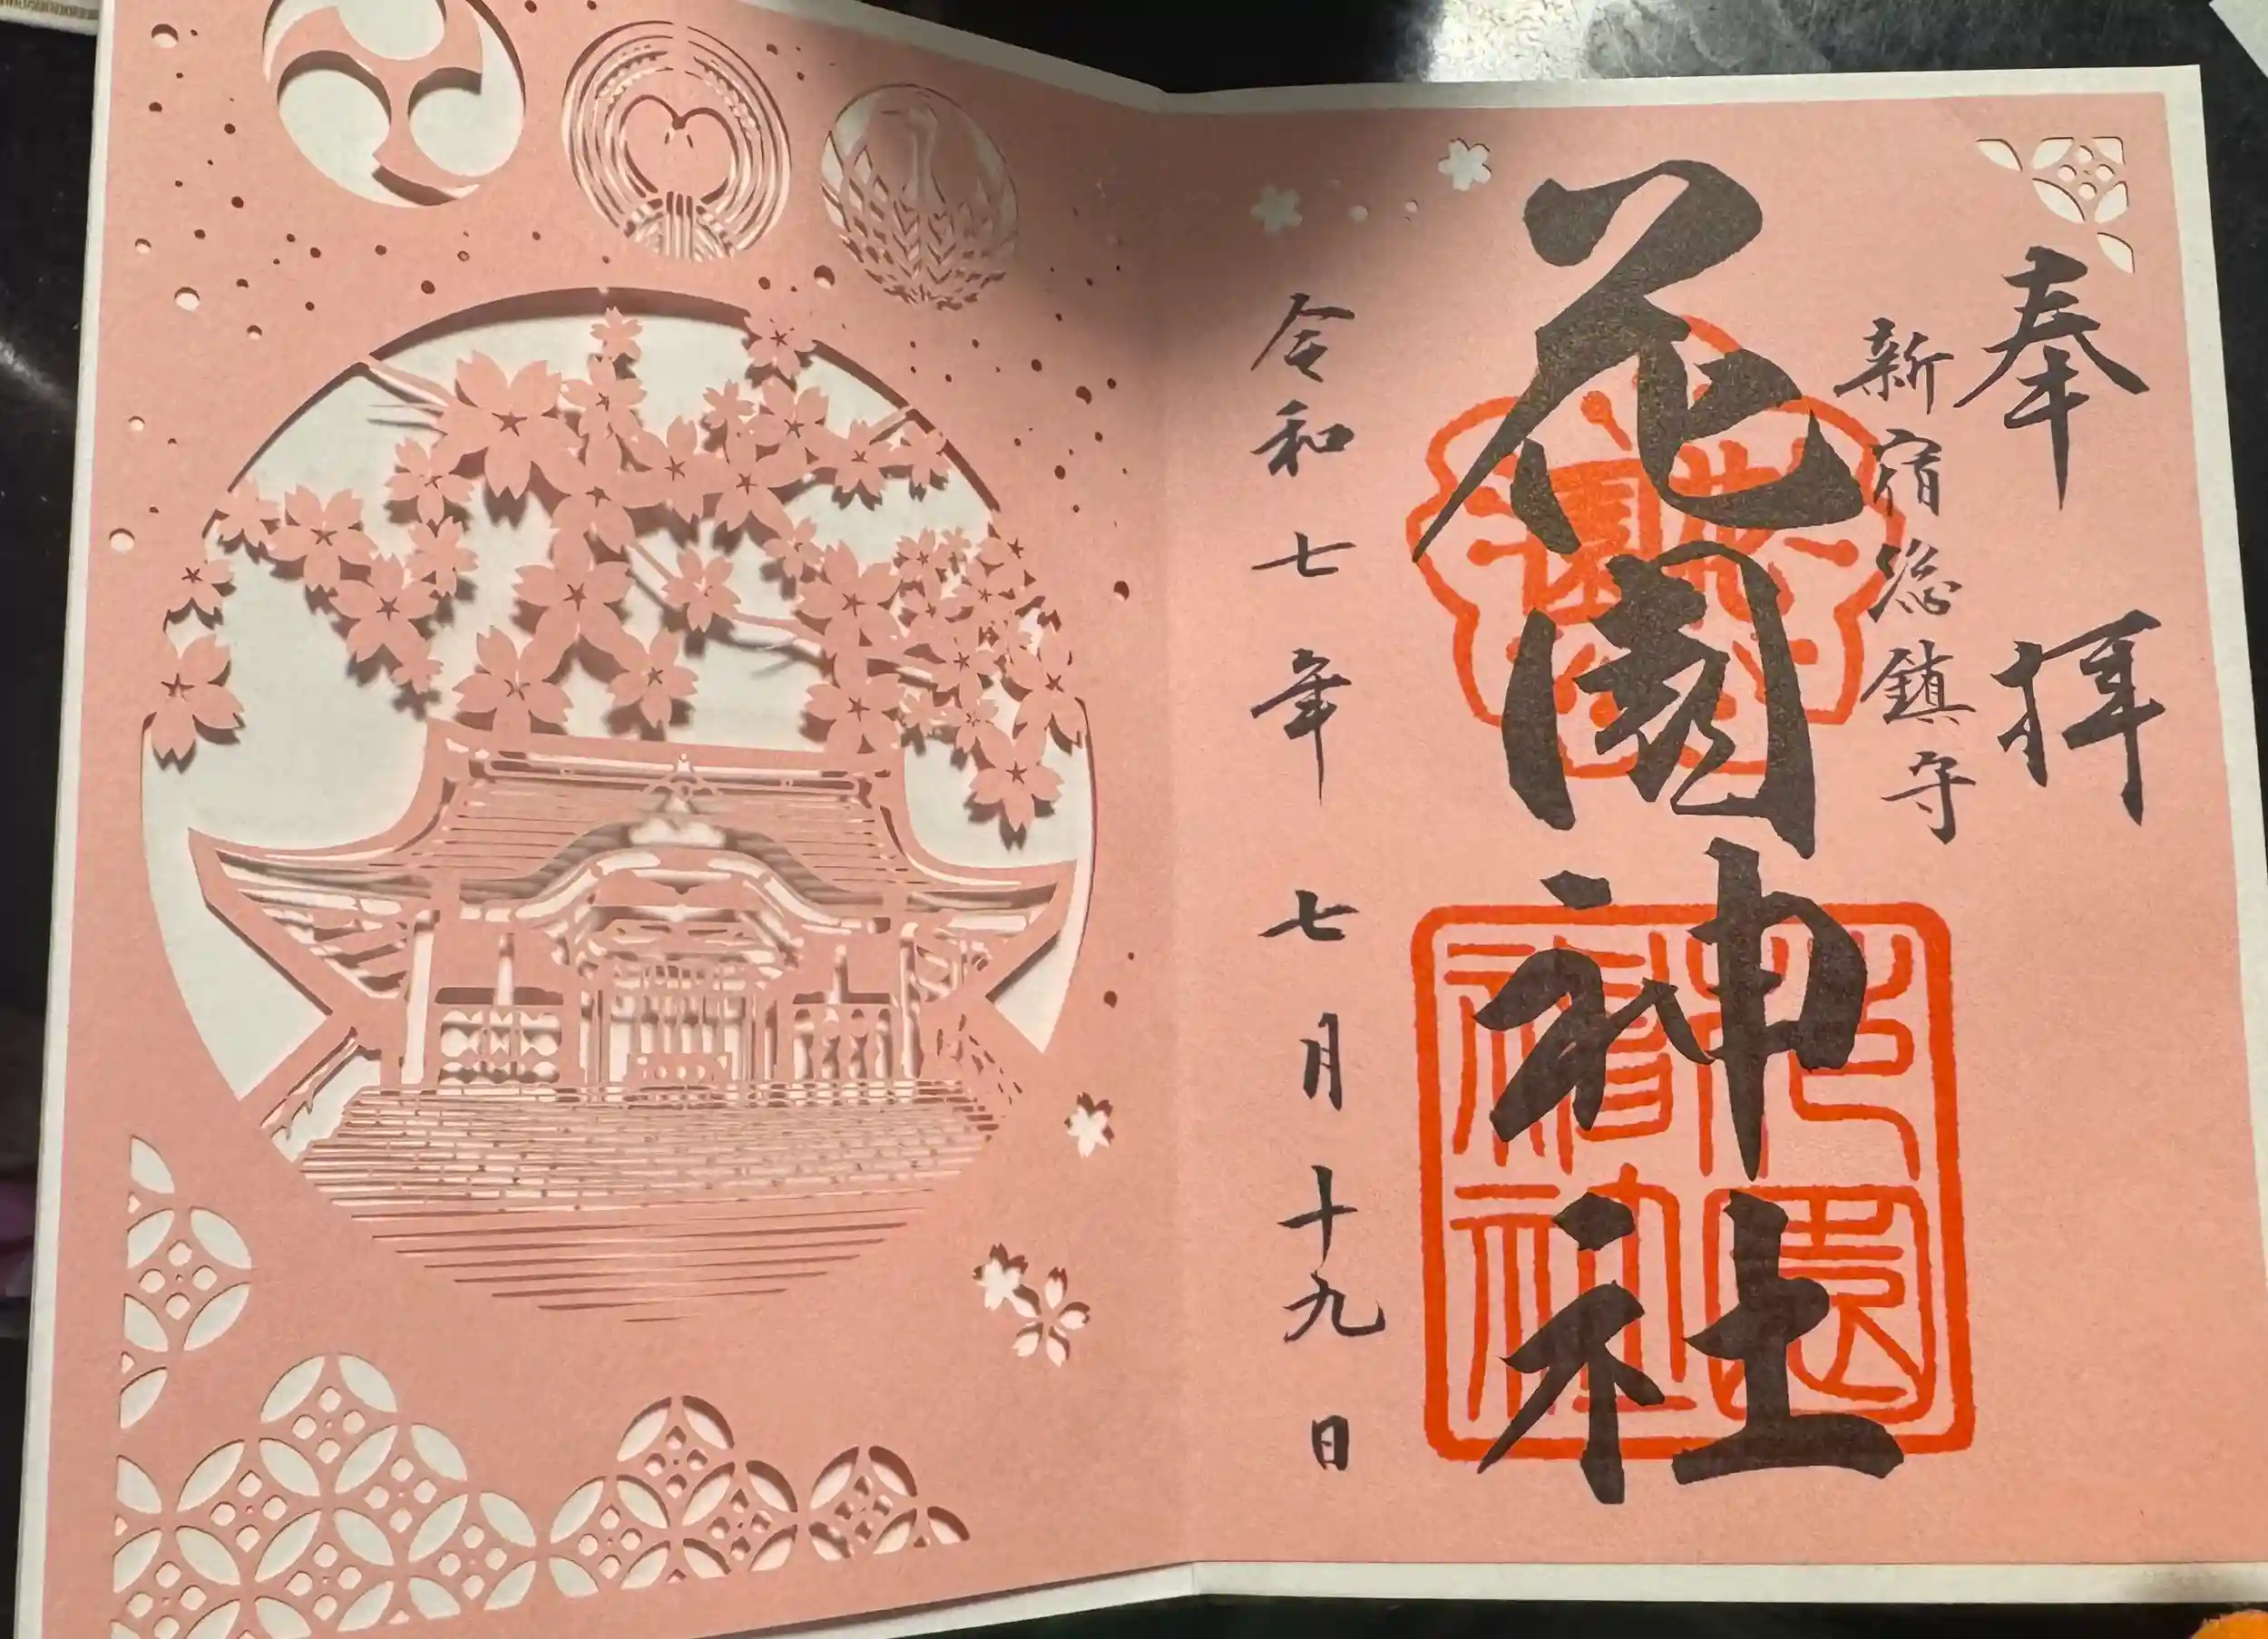 奉拝
新宿総鎮守
花園神社
令和七年七月十九日
花園神社